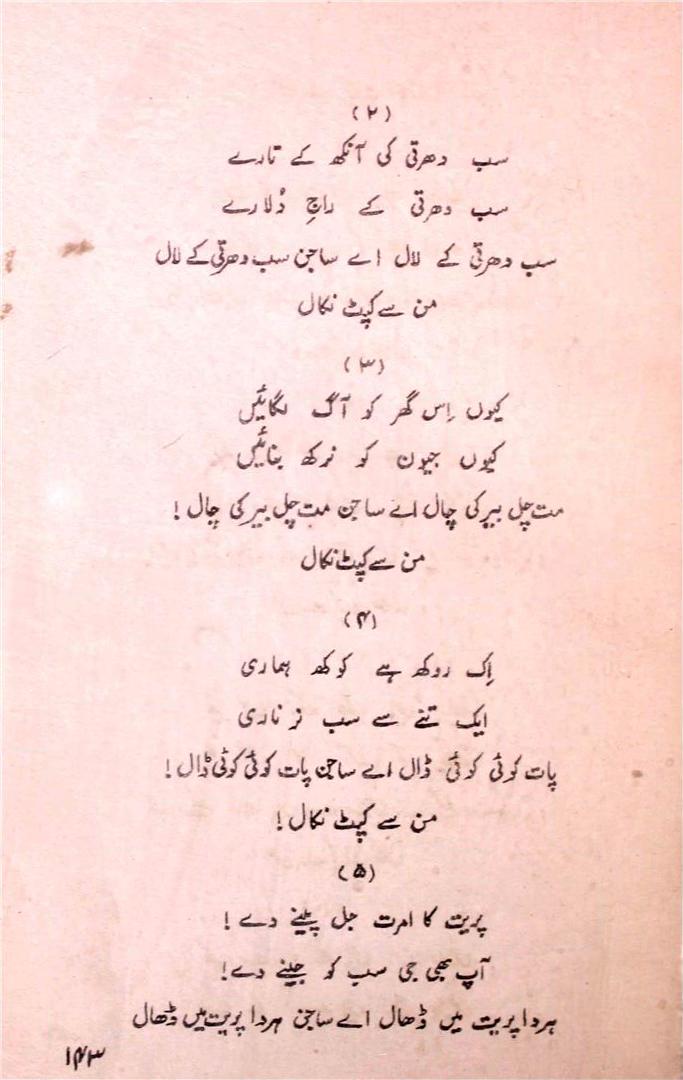 (۲)
سب دھرتی کی آنکھ کے تارے
سب دھرتی کے راج دُلارے
سب دھرتی کے لال اے ساجن سب دھرتی کے لال
من سے کپٹ نکال
(۳)
کیوں اِس گھر کو آگ لگائیں
کیوں جیون کو نرکھ بنائیں
مت چل بیر کی چال اے ساجن مت چل بیر کی چال!
من سے کپٹ نکال
(۴)
اِک روکھ ہے کوکھ ہماری
ایک تنے سے سب نر ناری
پات کوئی کوئی ڈال اے ساجن پات کوئی کوئی ڈال!
من سے کپٹ نکال!
(۵)
پریت کا امرت جل پینے دے!
آپ بھی جی سب کو جینے دے!
ہردا پریت میں ڈھال اے ساجن ہردا پریت میں ڈھال
۱۴۳